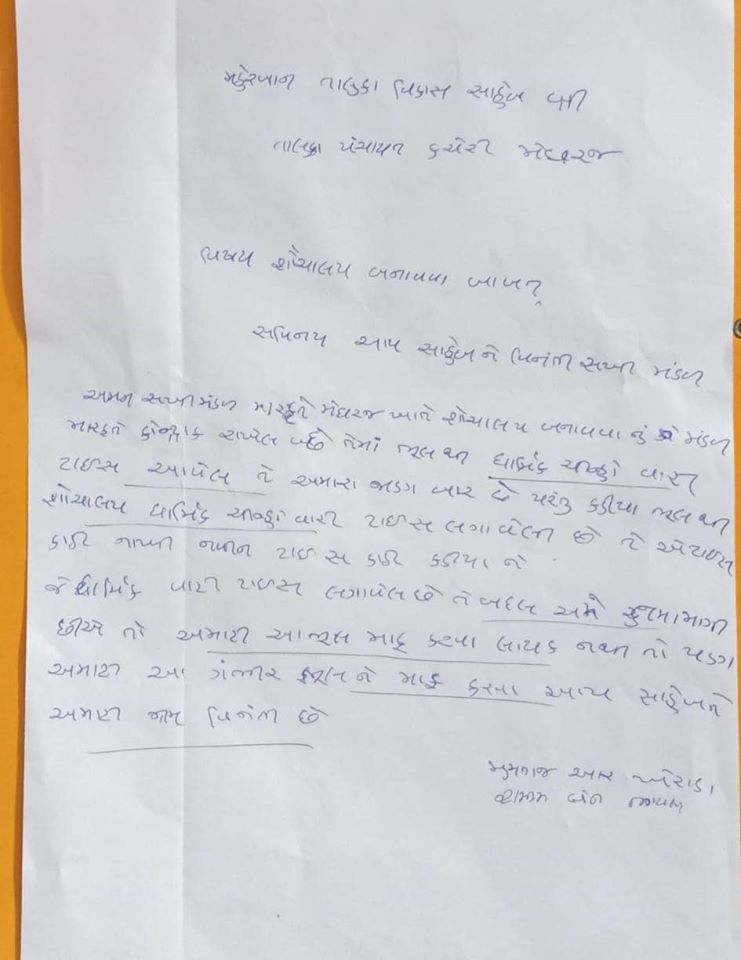 મહેરબાન તાલુકા વિકાસ સાહેબ શ્રી
તાલુકા પંચાયત કચેરી મેઘરજ
વિષય શૌચાલય બનાવવા બાબત
સવિનય આપ સાહેબ ને વિનંતી સખી મંડળ
અમન સખી મંડળ મારફતે મેઘરજ ખાતે શૌચાલય બનાવવા નું મંડળ
મારફતે રાખેલ છે તેમાં ભુલ થી ધાર્મિક ચિન્હો વારી
ટાઇલ્સ આવેલ તે અમારા બહાર છે પરંતુ કડીયા ભુલ થી
શૌચાલય ધાર્મિક ચિન્હો વારી ટાઇલ્સ લગાવેલી છે તે એ ટાઇલ્સ
કાઢી નાખી નવીન ટાઇલ્સ કાઢી કડીયા ને
જે ધાર્મિક વારી ટાઇલ્સ લગાવેલ છે તે બદલ અમે માગી
છીએ તો અમારી આ ભુલ માફ કરવા લાયક નથી તો પણ
અમારી આ ગંભીર ભુલ ને માફ કરવા આપ સાહેબ ને
અમારી નમ્ર વિનંતી છે
મુમતાજ આર
બેન